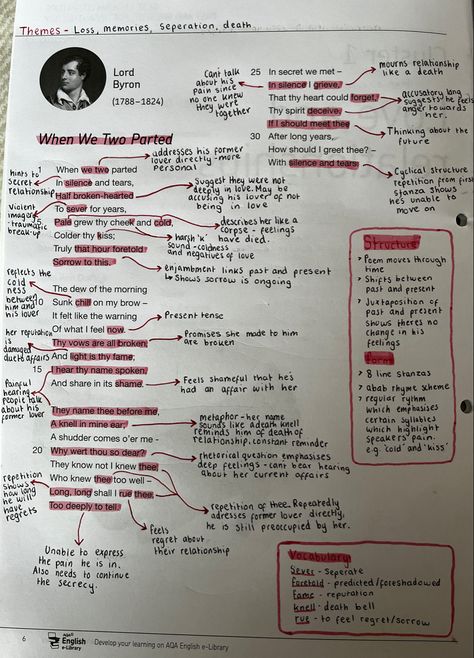 Themes - Loss, memories, seperation, death
Lord
Byron
(1788–1824)
When We Two Parted
1 When we two parted
In silence and tears,
Half broken-hearted
To sever for years,
5 Pale grew thy cheek and cold,
Colder thy kiss;
Truly that hour foretold
Sorrow to this.
The dew of the morning
10 Sunk chill on my brow –
It felt like the warning
Of what I feel now.
Thy vows are all broken,
And light is thy fame;
15 I hear thy name spoken,
And share in its shame.
They name thee before me,
A knell in mine ear;
A shudder comes o'er me –
20 Why wert thou so dear?
They know not I knew thee,
Who knew thee too well –
Long, long shall I rue thee,
Too deeply to tell.
25 In secret we met –
In silence I grieve,
That thy heart could forget,
Thy spirit deceive.
If I should meet thee
30 After long years,
How should I greet thee? –
With silence and tears.
Cant talk
about his
pain since
no one knew
they were
together
mourns relationship
like a death
accusatory long
suggests the feels
anger towards
her.
Thinking about the
future
Cyclical structure
repetition from first
stanza shows
hes unable to
move on
addresses his former
lover directly-more
personal
hints to
secret
relationship
Suggest they were not
deeply in love. May be
accusing his lover of not
being in love
Violent
imagery
traumatic
break-up
describes her like a
corpse - feelings
have died.
harsh 'k'
sound - coldness
and negatives of love
enjambment links past and present
↳ Shows sorrow is ongoing
reflects the
cold
ness
between
him and
his lover
Present tense
Promises she made to him
are broken
her reputation
is
damaged
due to affairs
Feels shameful that he's
had an affair with her
Painful
hearing
people talk
about his
former
lover
metaphor - her name
sounds like a death knell
reminds him of death of
relationship. constant reminder
rhetorical question emphasises
deep feelings - cant bear hearing
about her current affairs
repetition
shows
how long
he will
have
regrets
repetition of thee. Repeatedly
adresses former lover directly,
he is still preoccupied by her.
feels
regret about
their relationship
Unable to express
the pain he is in.
Also needs to continue
the secrecy.
Structure
> Poem moves through
time
> Shifts between
past and present
> Juxtaposition of
past and present
shows theres no
change in his
feelings
Form
> 8 line stanzas
> abab rhyme scheme
> regular rythm
which emphasises
certain syllables
which highlight
speakers' pain.
e.g 'cold' and 'kiss'
Vocabulary
Sever - Seperate
foretold - predicted/foreshadowed
fame - reputation
knell - death bell
rue - to feel regret/sorrow
6
AQA
English
e-Library
Develop your learning on AQA English e-Library